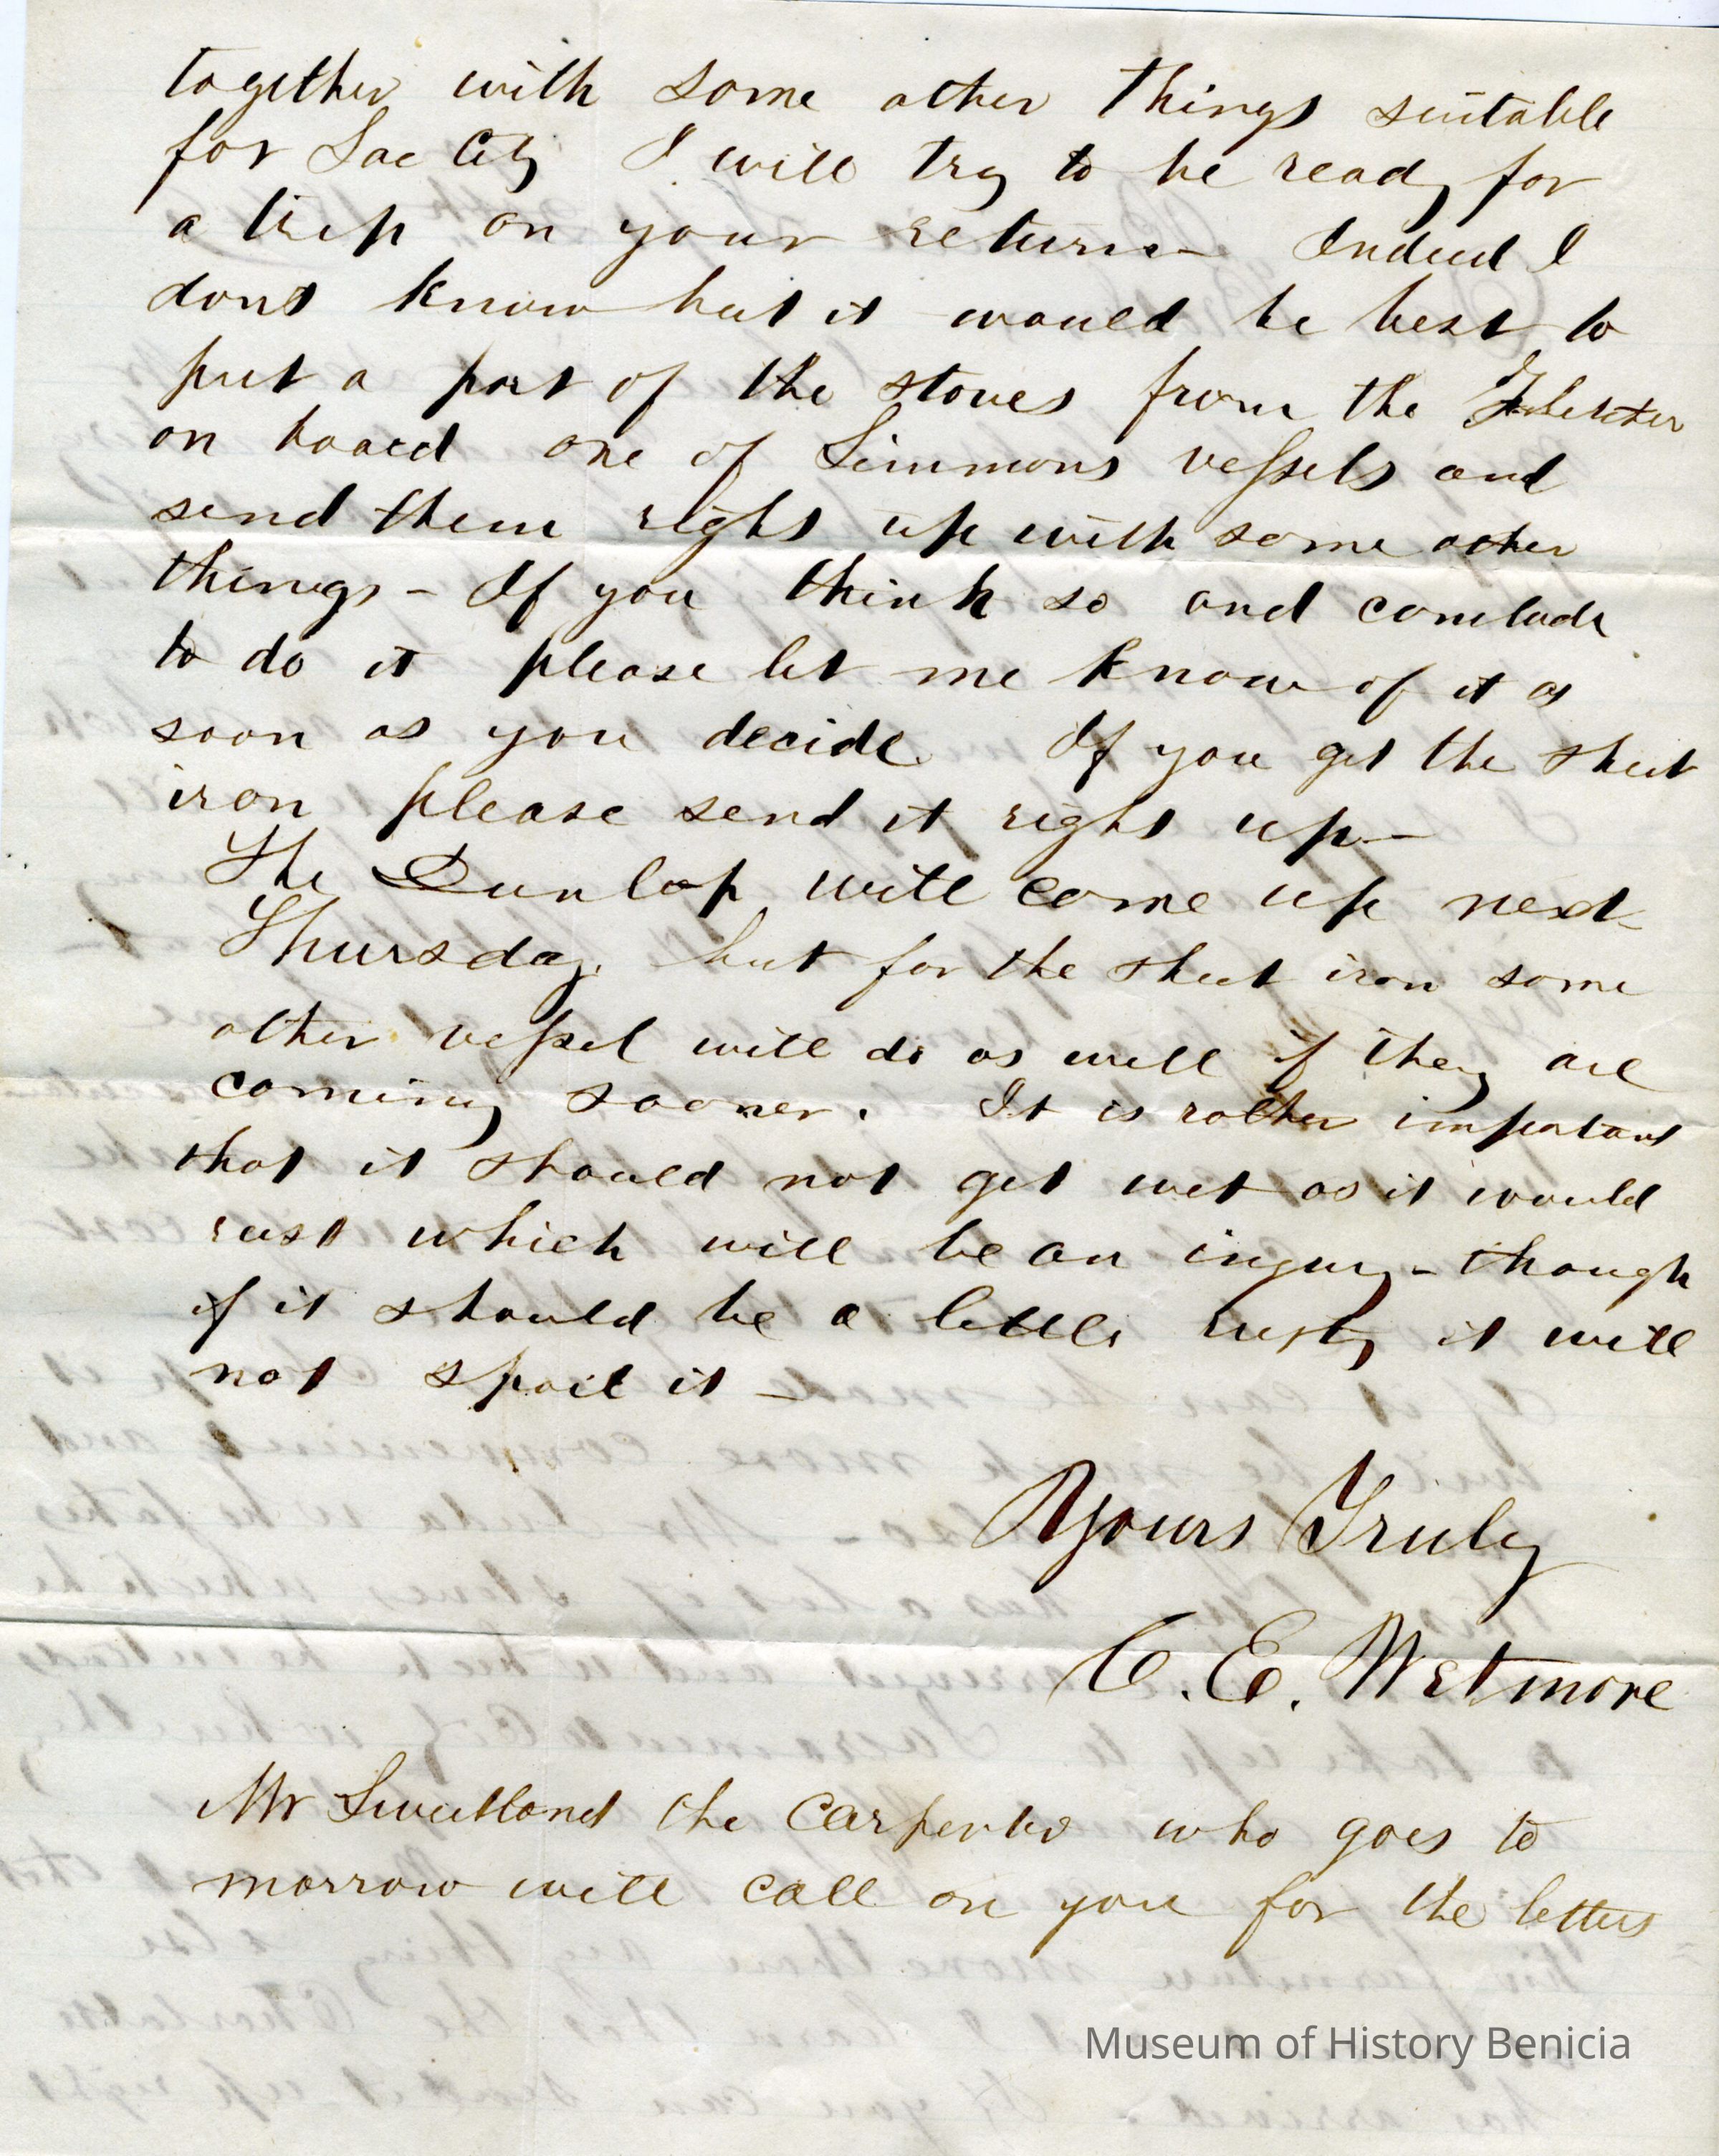 together with some other things suitable
for Sac City I will try to be ready for
a trip on your return – Indeed I
dont know but it would be best to
put a part of the stoves from the
on board one of Simmons vessels and
send them right up with some other
things – If you think so and conclude
to do it please let me know of it as
soon as you decide. If you get the sheet
iron please send it right up –
The Dunlap will come up next
Thursday. but for the sheet iron some
other vessel will do as well if they are
coming sooner. It is rather important
that it should not get wet as it would
rust which will be an injury – though
if it should be a little rusty it will
not spoil it –
Yours Truly
C. E. Wetmore
Mr Sweetland the Carpenter who goes to
morrow will call on you for the letters
Museum of History Benicia